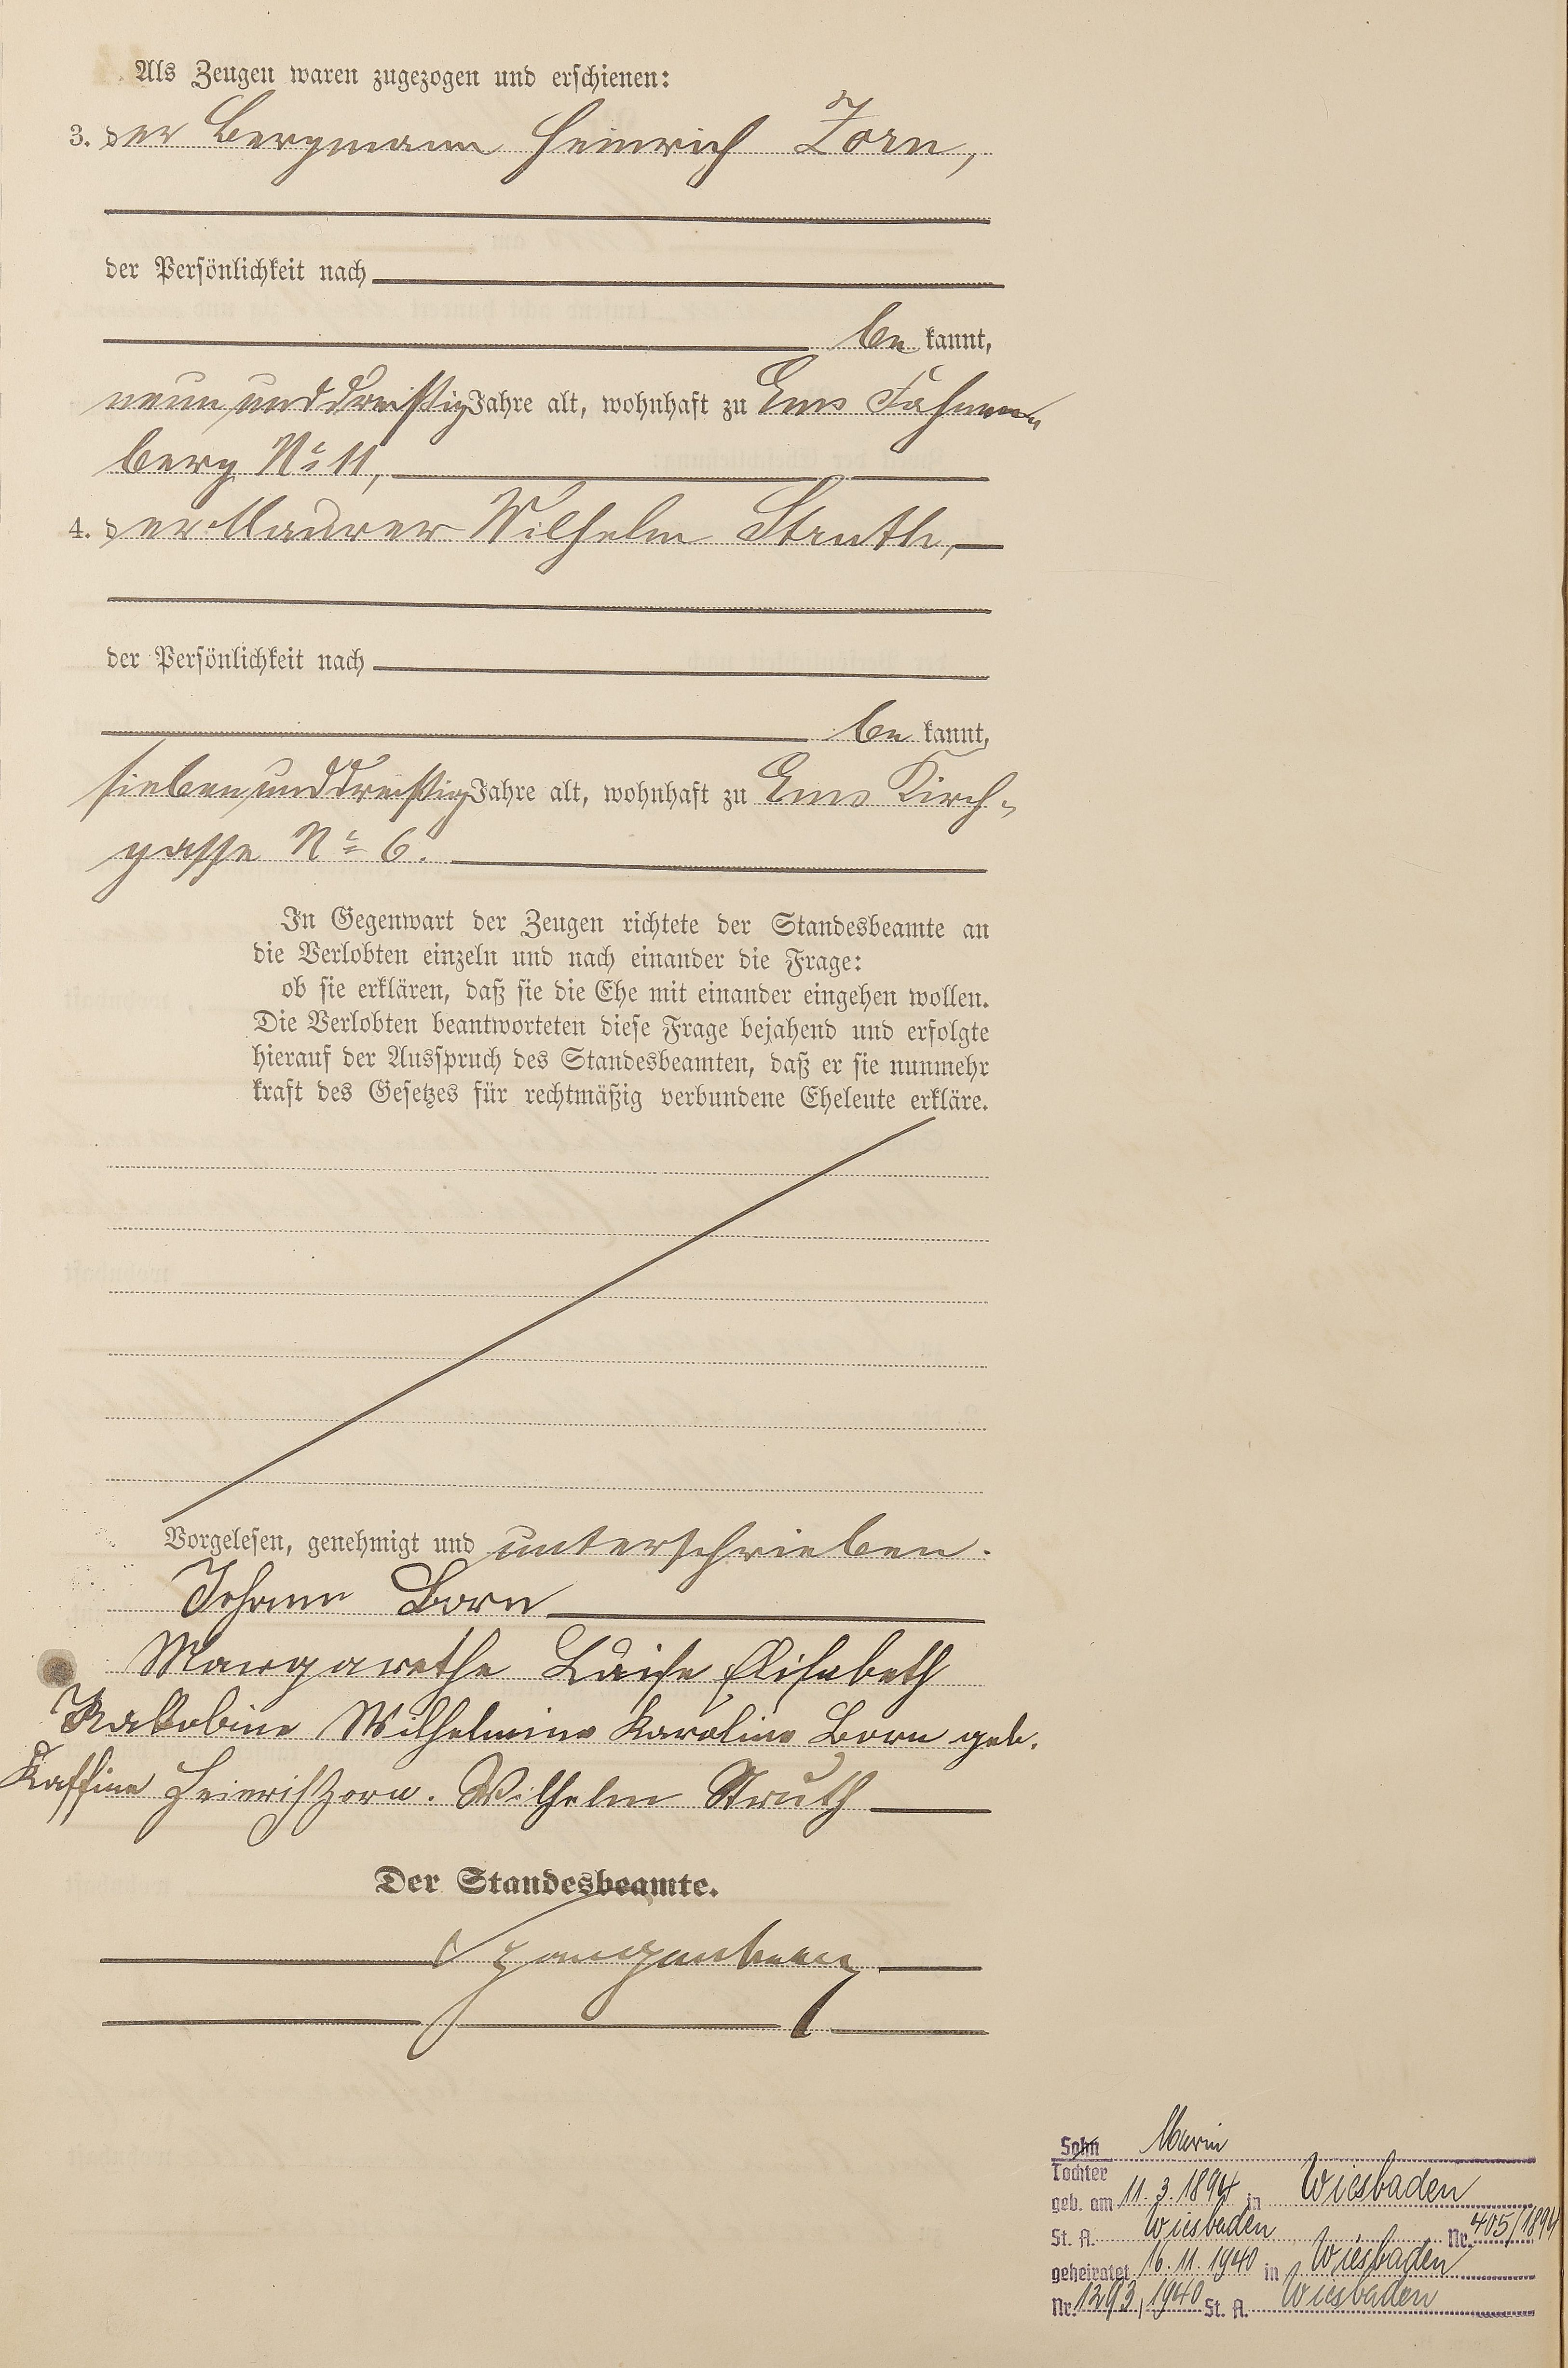 Als Zeugen waren zugezogen und erschienen:
3. der Bergmann Heinrich Zorn,
der Persönlichkeit nach
be kannt,
neun und dreißig Jahre alt, wohnhaft zu Ems Fahnen
berg No 11,
4. der Maurer Wilhelm Struth,
der Persönlichkeit nach
be kannt,
sieben und dreißig Jahre alt, wohnhaft zu Ems Kirch-
gasse No 6.
In Gegenwart der Zeugen richtete der Standesbeamte an
die Verlobten einzeln und nach einander die Frage:
ob sie erklären, daß sie die Ehe mit einander eingehen wollen.
Die Verlobten beantworteten diese Frage bejahend und erfolgte
hierauf der Ausspruch des Standesbeamten, daß er sie nunmehr
kraft des Gesetzes für rechtmäßig verbundene Eheleute erkläre.
Vorgelesen, genehmigt und unterschrieben.
Johann Born
Margarethe Luise Elisabeth
Jakobine Wilhelmine Karoline Born geb.
Kaffine Heinrich Zorn. Wilhelm Struth
Der Standesbeamte.
Spangenberg
Sohn Maria
Tochter
geb. am 11. 3. 1894 in Wiesbaden
St. A. Wiesbaden Nr. 405/1894
geheiratet 16. 11. 1940 in Wiesbaden
Nr. 1293, 1940 St. A. Wiesbaden